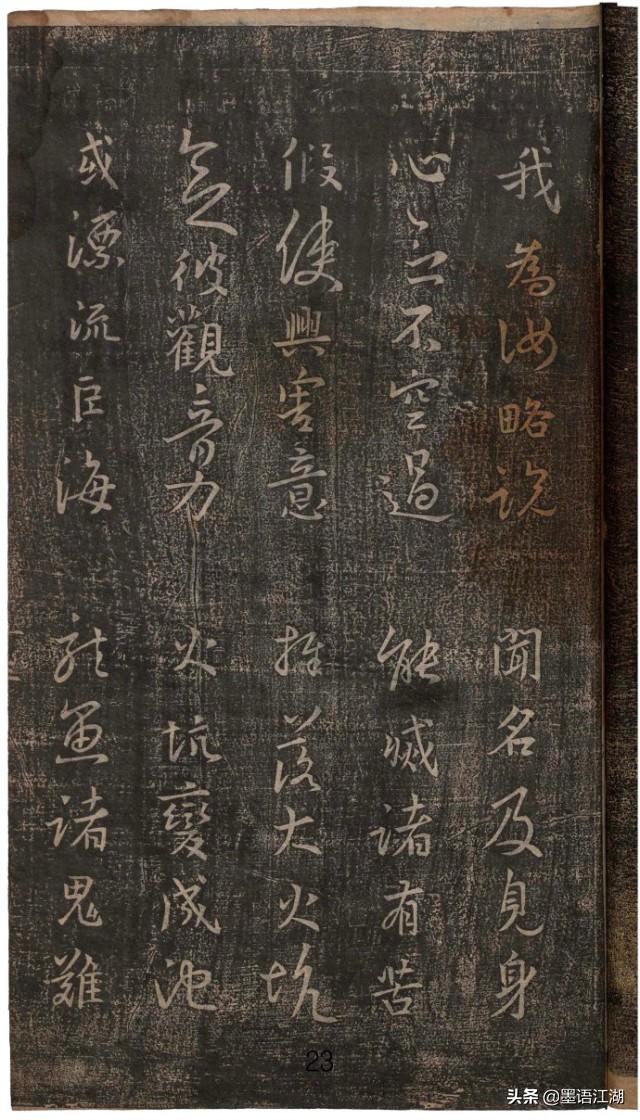 我為汝略說 聞名及見身
心念不空過 能滅諸有苦
假使興害意 推落大火坑
念彼觀音力 火坑變成池
或漂流巨海 龍魚諸鬼難
23
头条 @墨语江湖